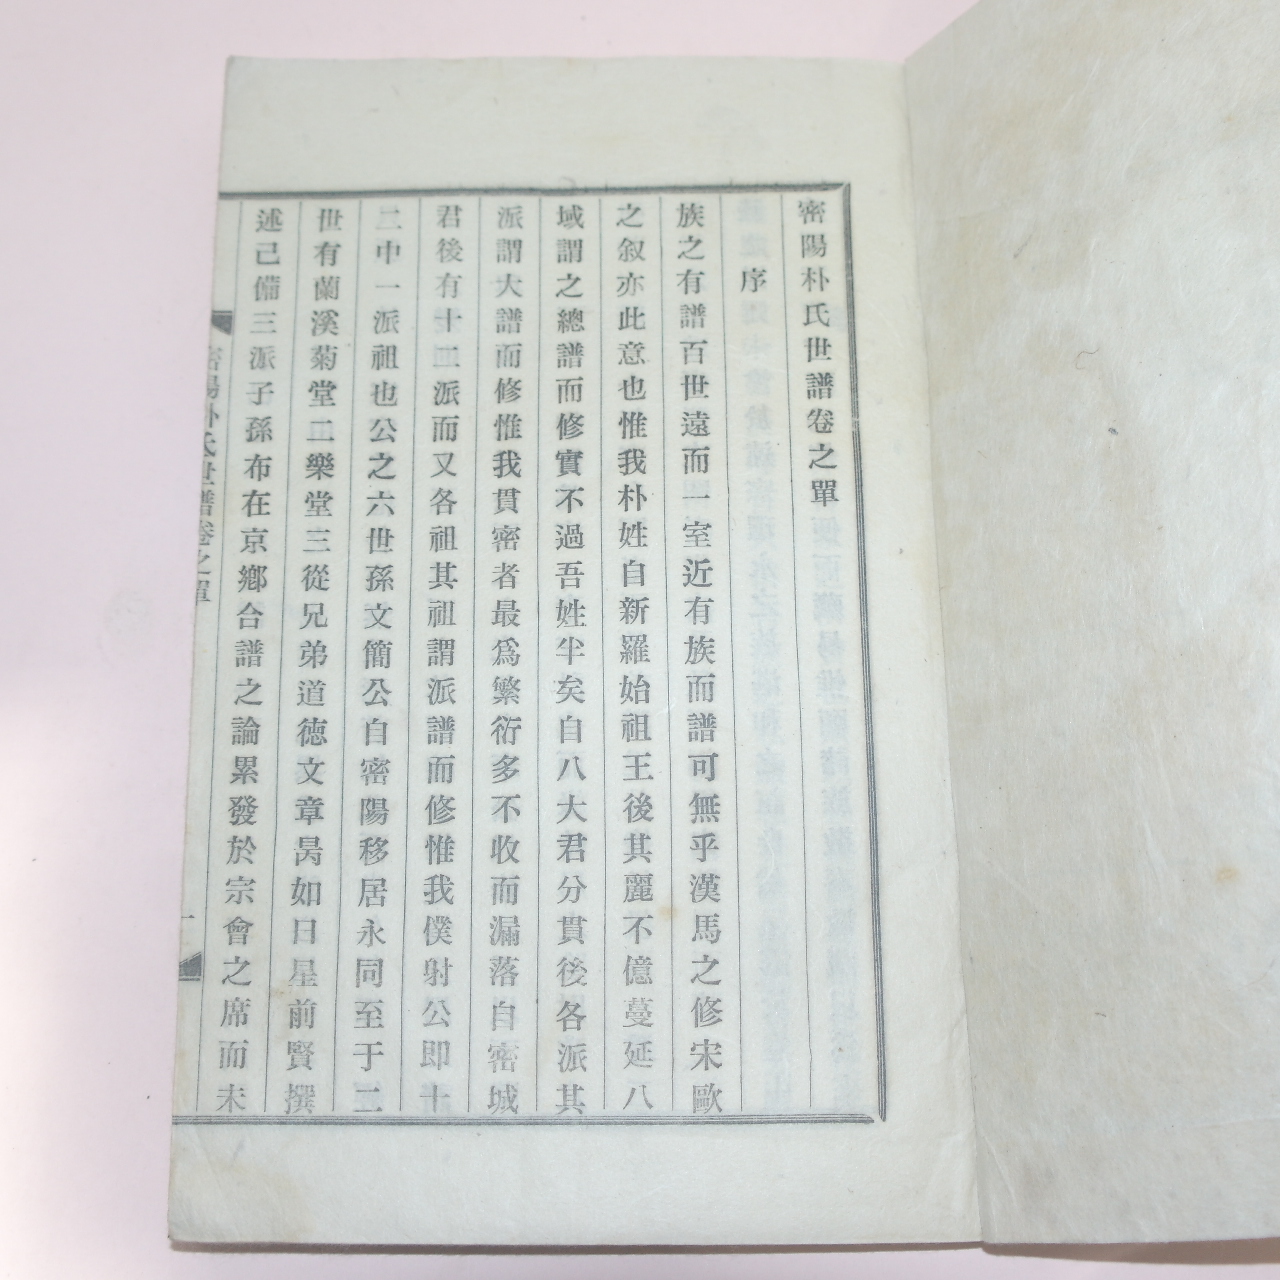 密陽朴氏世譜卷之單
序
族之有譜百世遠而一室近有族而譜可無乎漢馬之修宋歐
之叙亦此意也惟我朴姓自新羅始祖王後其麗不億蔓延八
域謂之總譜而修實不過吾姓半矣自八大君分貫後各派其
派謂大譜而修惟我貫密者最爲繁衍多不收而漏落自密城
君後有十二派而又各祖其祖謂派譜而修惟我僕射公即十
二中一派祖也公之六世孫文簡公自密陽移居永同至于二
世有蘭溪菊堂二樂堂三從兄弟道德文章昺如日星前賢撰
述已備三派子孫布在京鄉合譜之論累發於宗會之席而未
密陽朴氏世譜卷之單
一